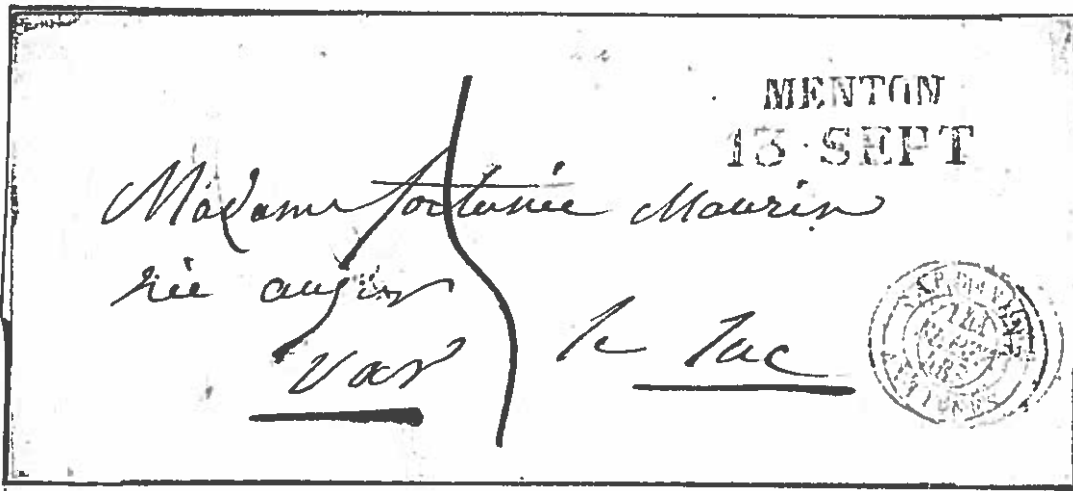 MENTON
13 SEPT
Madame fortunée Maurin
née augier
Var le Luc
ANTIBES